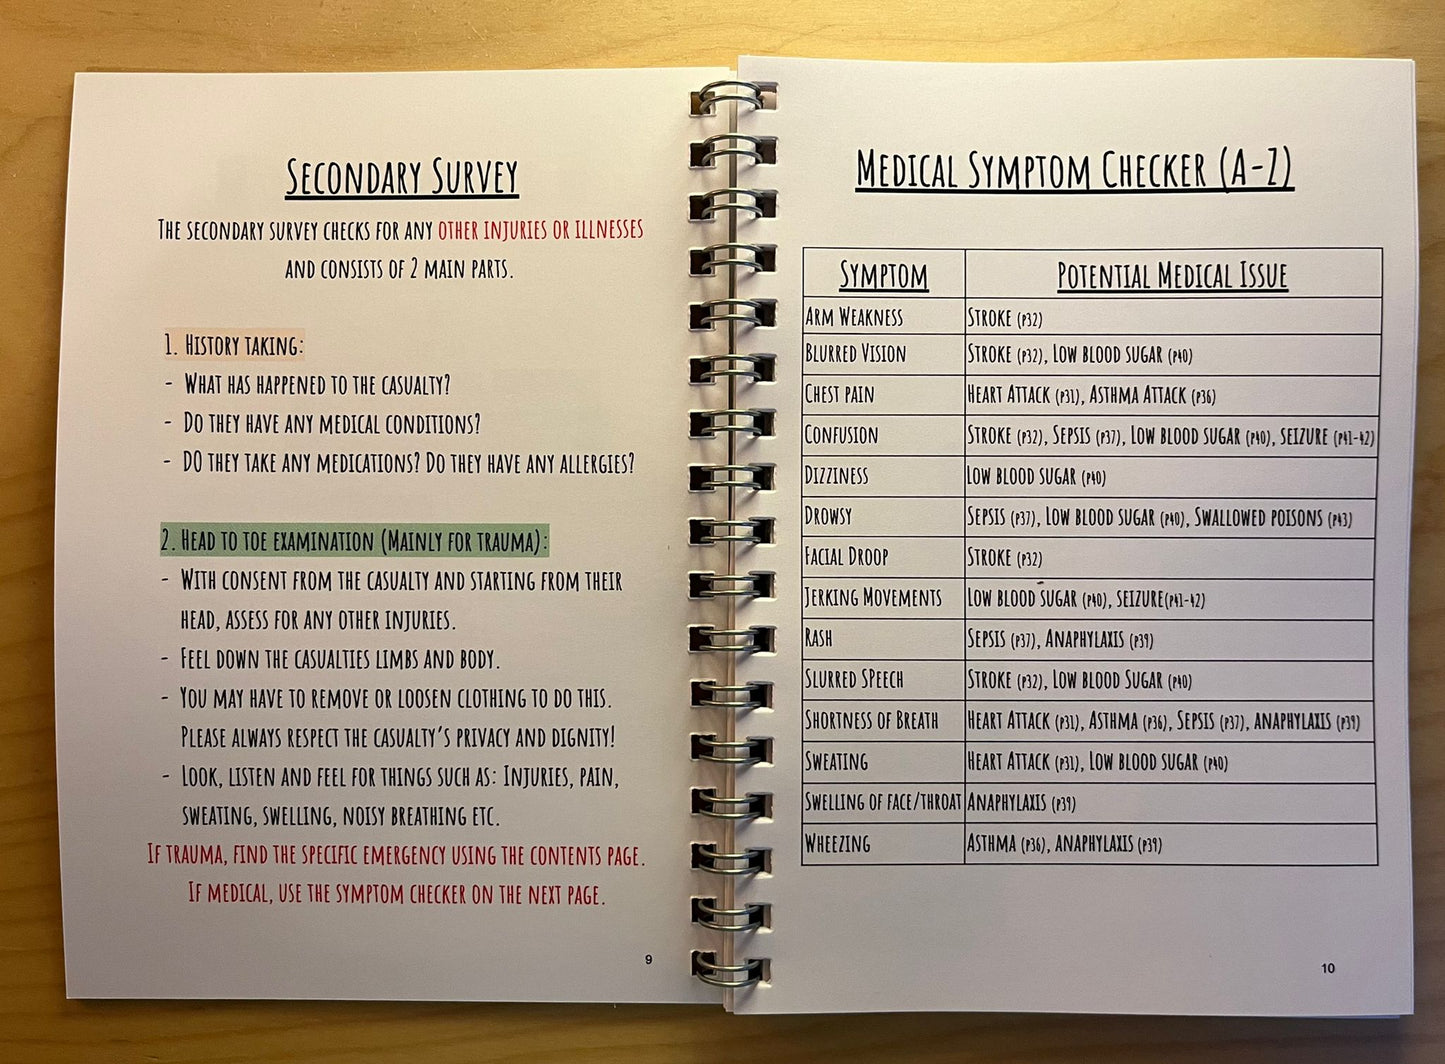 SECONDARY SURVEY
THE SECONDARY SURVEY CHECKS FOR ANY OTHER INJURIES OR ILLNESSES
AND CONSISTS OF 2 MAIN PARTS.
1. HISTORY TAKING:
- WHAT HAS HAPPENED TO THE CASUALTY?
- DO THEY HAVE ANY MEDICAL CONDITIONS?
- DO THEY TAKE ANY MEDICATIONS? DO THEY HAVE ANY ALLERGIES?
2. HEAD TO TOE EXAMINATION (MAINLY FOR TRAUMA):
- WITH CONSENT FROM THE CASUALTY AND STARTING FROM THEIR
HEAD, ASSESS FOR ANY OTHER INJURIES.
- FEEL DOWN THE CASUALTIES LIMBS AND BODY.
- YOU MAY HAVE TO REMOVE OR LOOSEN CLOTHING TO DO THIS.
PLEASE ALWAYS RESPECT THE CASUALTY'S PRIVACY AND DIGNITY!
- LOOK, LISTEN AND FEEL FOR THINGS SUCH AS: INJURIES, PAIN,
SWEATING, SWELLING, NOISY BREATHING ETC.
IF TRAUMA, FIND THE SPECIFIC EMERGENCY USING THE CONTENTS PAGE.
IF MEDICAL, USE THE SYMPTOM CHECKER ON THE NEXT PAGE.
9
MEDICAL SYMPTOM CHECKER (A-Z)
SYMPTOM POTENTIAL MEDICAL ISSUE
ARM WEAKNESS STROKE (P32)
BLURRED VISION STROKE (P32), LOW BLOOD SUGAR (P40)
CHEST PAIN HEART ATTACK (P31), ASTHMA ATTACK (P36)
CONFUSION STROKE (P32), SEPSIS (P37), LOW BLOOD SUGAR (P40), SEIZURE (P41-42)
DIZZINESS LOW BLOOD SUGAR (P40)
DROWSY SEPSIS (P37), LOW BLOOD SUGAR (P40), SWALLOWED POISONS (P43)
FACIAL DROOP STROKE (P32)
JERKING MOVEMENTS LOW BLOOD SUGAR (P40), SEIZURE(P41-42)
RASH SEPSIS (P37), ANAPHYLAXIS (P39)
SLURRED SPEECH STROKE (P32), LOW BLOOD SUGAR (P40)
SHORTNESS OF BREATH HEART ATTACK (P31), ASTHMA (P36), SEPSIS (P37), ANAPHYLAXIS (P39)
SWEATING HEART ATTACK (P31), LOW BLOOD SUGAR (P40)
SWELLING OF FACE/THROAT ANAPHYLAXIS (P39)
WHEEZING ASTHMA (P36), ANAPHYLAXIS (P39)
10